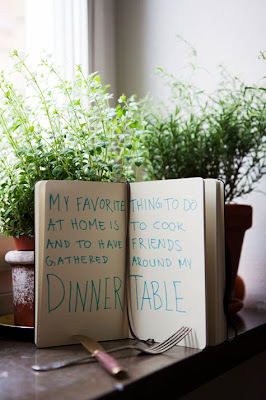 MY FAVORITE THING TO DO
AT HOME IS TO COOK
AND TO HAVE FRIENDS
GATHERED AROUND MY
DINNER TABLE